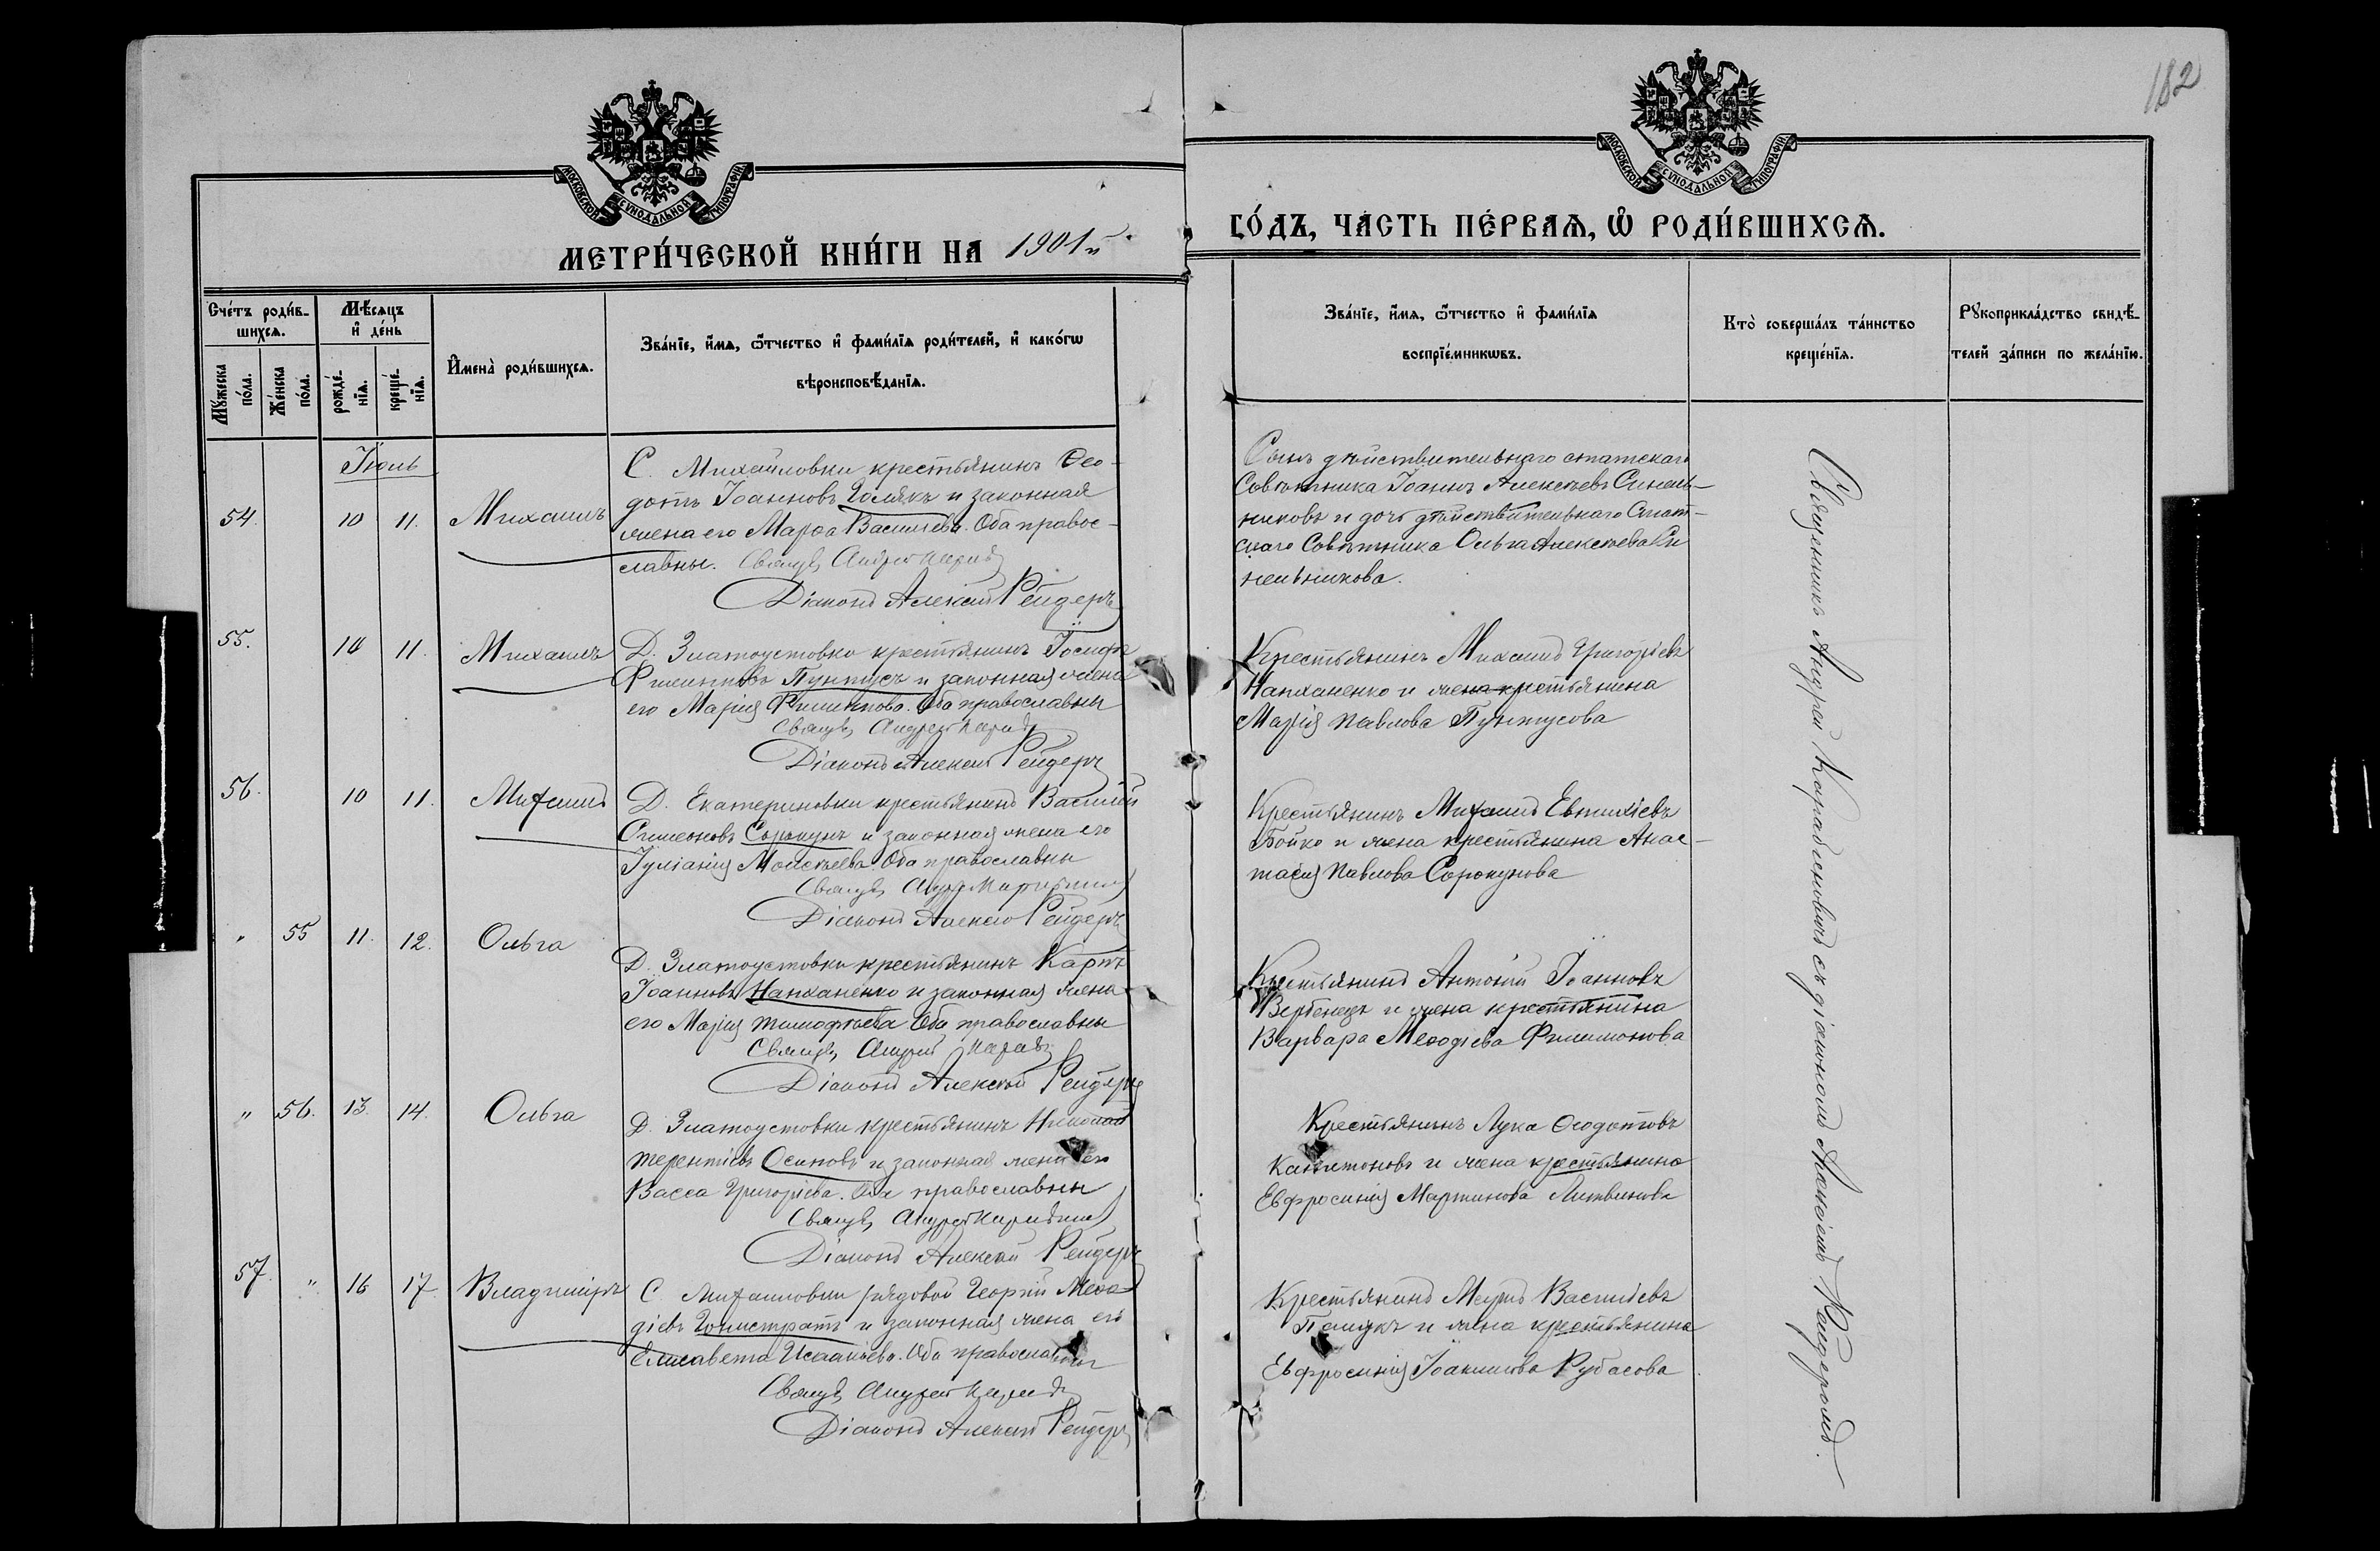 182
МОСКОВСКОЙ СУНОДАЛЬНОЙ ТИПОГРАФІИ
МОСКОВСКОЙ СУНОДАЛЬНОЙ ТИПОГРАФІИ
МЕТРИ́ЧЕСКОЙ КНИ́ГИ НА 1901й
ГО́ДЪ, ЧА́СТЬ ПЕ́РВАѦ, Ѽ РОДИ́ВШИХСѦ.
Сче́тъ роди́в-
шихсѧ.
Мꙋ́жеска по́ла.
Же́нска по́ла.
Мѣ́сѧцъ
и҆ де́нь
рожде́-
нїѧ.
креще́-
нїѧ.
И҆мена̀ роди́вшихсѧ.
Зва́нїе, и҆́мѧ, ѻ҆́тчество и҆ фами́лїѧ роди́телей, и҆ како́гѡ
вѣроисповѣ́данїѧ.
Зва́нїе, и҆́мѧ, ѻ҆́тчество и҆ фами́лїѧ
воспрїе́мникѡвъ.
Кто̀ соверша́лъ та́инство
креще́нїѧ.
Рꙋкоприкла́дство свидѣ́-
телей за́писи по жела́нїю.
Іюль
54. 10 11. Михаилъ
С. Михайловки крестьянинъ Ѳео-
дотъ Іоанновъ Голякъ и законная
жена его Марѳа Васильева. Оба правос-
славны. Свящ. Андрей Карав
Діаконъ Алексій Рейдеръ
Сынъ дѣйствительнаго статскаго
Совѣтника Іоаннъ Алексѣевъ Синель-
никовъ и дочь дѣйствительнаго Стат-
скаго Совѣтника Ольга Алексѣева Си
нельникова.
55. 10 11. Михаилъ
Д. Златоустовки крестьянинъ Іосифъ
Филипповъ Пунтусъ и законная жена
его Марія Филиппова. Оба православны
Свящ. Андрей Карав
Діаконъ Алексій Рейдеръ
Крестьянинъ Михаилъ Григоріевъ
Напханенко и жена крестьянина
Марія Павлова Пунтусова
56. 10 11. Михаилъ
Д. Екатериновки крестьянинъ Василій
Симеоновъ Сорокунъ и законная жена его
Іуліанія Моисѣева. Оба православны
Свящ. Андрей
Діаконъ Алексій Рейдеръ
Крестьянинъ Михаилъ Евтихіевъ
Бойко и жена крестьянина Анас-
тасія Павлова Сорокунова
" 55 11. 12. Ольга
Д. Златоустовки крестьянинъ Карпъ
Іоанновъ Напханенко и законная жена
его Марія Тимофѣева. Оба православны
Свящ. Андрей Карав
Діаконъ Алексій Рейдеръ
Крестьянинъ Антоній Іоанновъ
Вербенецъ и жена крестьянина
Варвара Меѳодіева Филимонова
" 56. 13. 14. Ольга
Д. Златоустовки крестьянинъ Николай
Терентіевъ Осиповъ и законная жена его
Васса Григоріева. Оба православны
Свящ. Андрей
Діаконъ Алексій Рейдеръ
Крестьянинъ Лука Ѳеодотовъ
Капитоновъ и жена крестьянина
Евфросинія Мартинова Литвинова
57. " 16 17. Владиміръ
С. Михайловки рядовой Георгій Меѳо-
діевъ Голистратъ и законная жена его
Елисавета Исаакіева. Оба православны
Свящ. Андрей Карав
Діаконъ Алексій Рейдеръ
Крестьянинъ Василіевъ
и жена крестьянина
Евфросинія Іоакимова Рубасова
Священникъ Андрей съ діакономъ Алексіемъ Рейдеромъ.